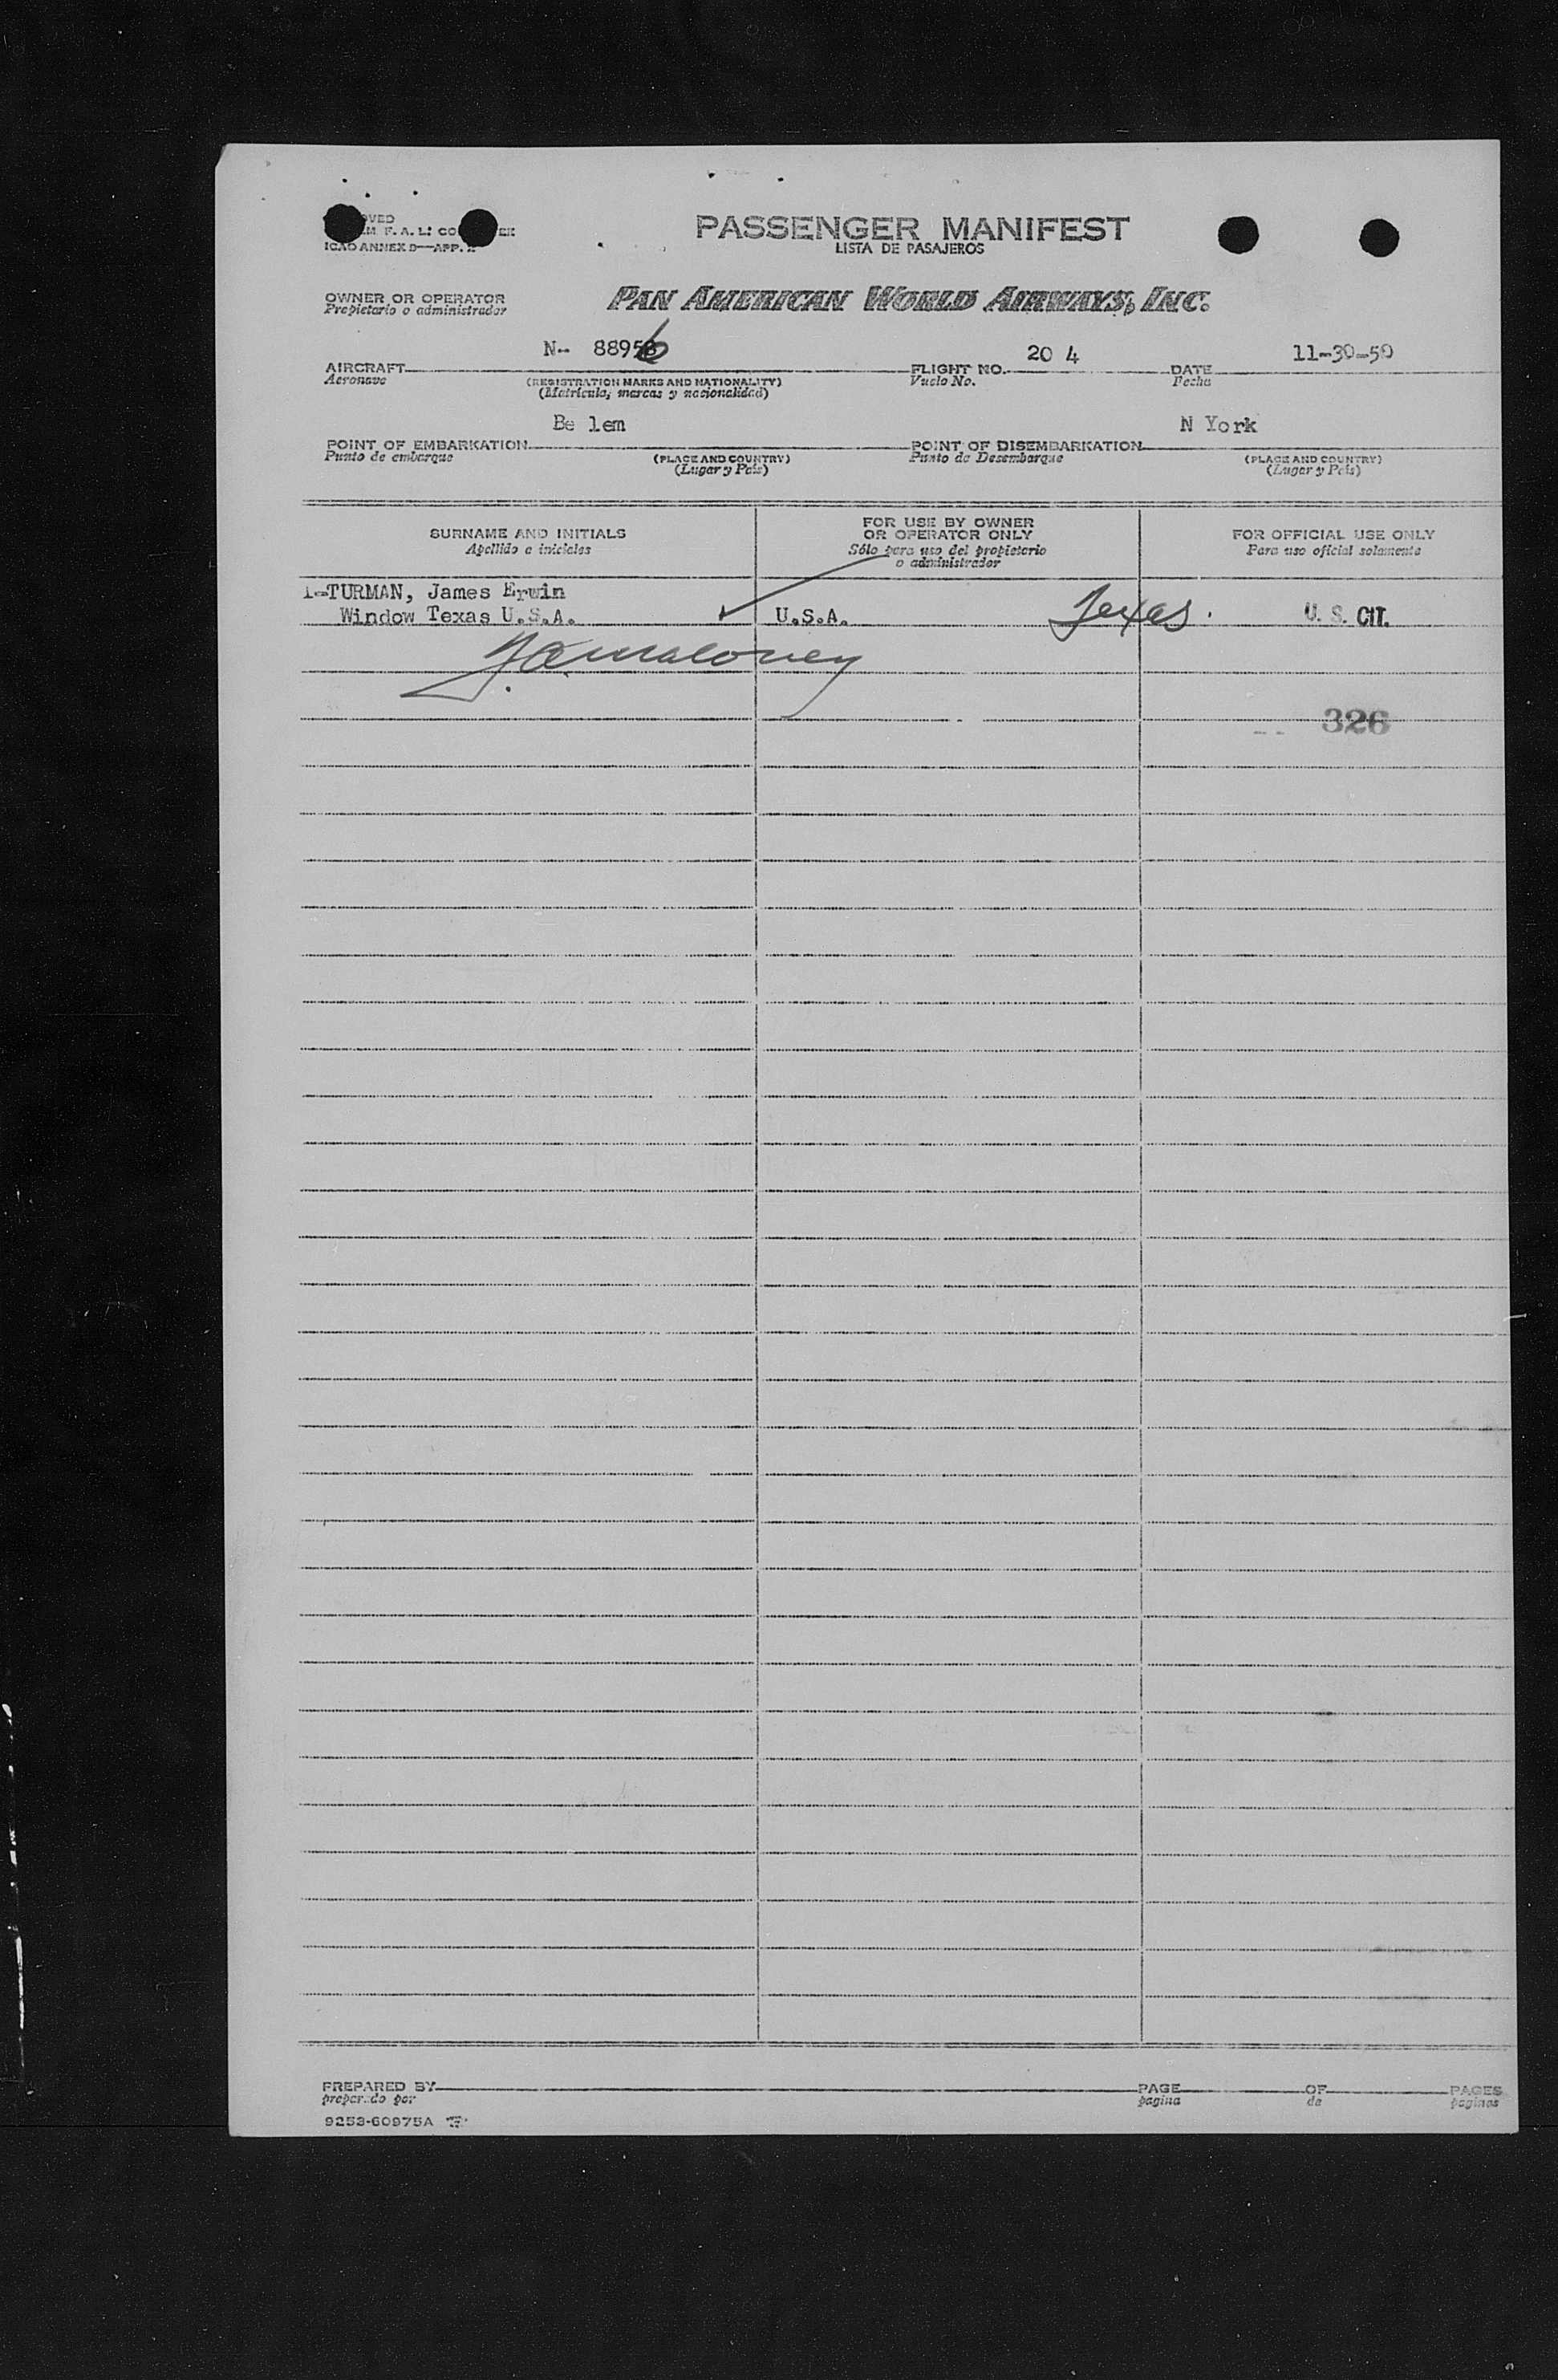 PASSENGER MANIFEST
LISTA DE PASAJEROS
ICAO ANNEX 9—APP.
OWNER OR OPERATOR
Propietario o administrador
PAN AMERICAN WORLD AIRWAYS, INC.
AIRCRAFT N-- 88956 FLIGHT NO. 20 4 DATE 11-30-50
Aeronave (REGISTRATION MARKS AND NATIONALITY) Vuelo No. Fecha
(Matrícula, marcas y nacionalidad)
POINT OF EMBARKATION Be lem POINT OF DISEMBARKATION N York
Punto de embarque (PLACE AND COUNTRY) Punto de Desembarque (PLACE AND COUNTRY)
(Lugar y País) (Lugar y País)
SURNAME AND INITIALS
Apellido e iniciales
FOR USE BY OWNER
OR OPERATOR ONLY
Sólo para uso del propietario
o administrador
FOR OFFICIAL USE ONLY
Para uso oficial solamente
1-TURMAN, James Erwin
Window Texas U.S.A. U.S.A. Texas. U. S. CIT.
J.A. Maloney
326
PREPARED BY PAGE OF PAGES
preparado por pagina de paginas
9253-60975A